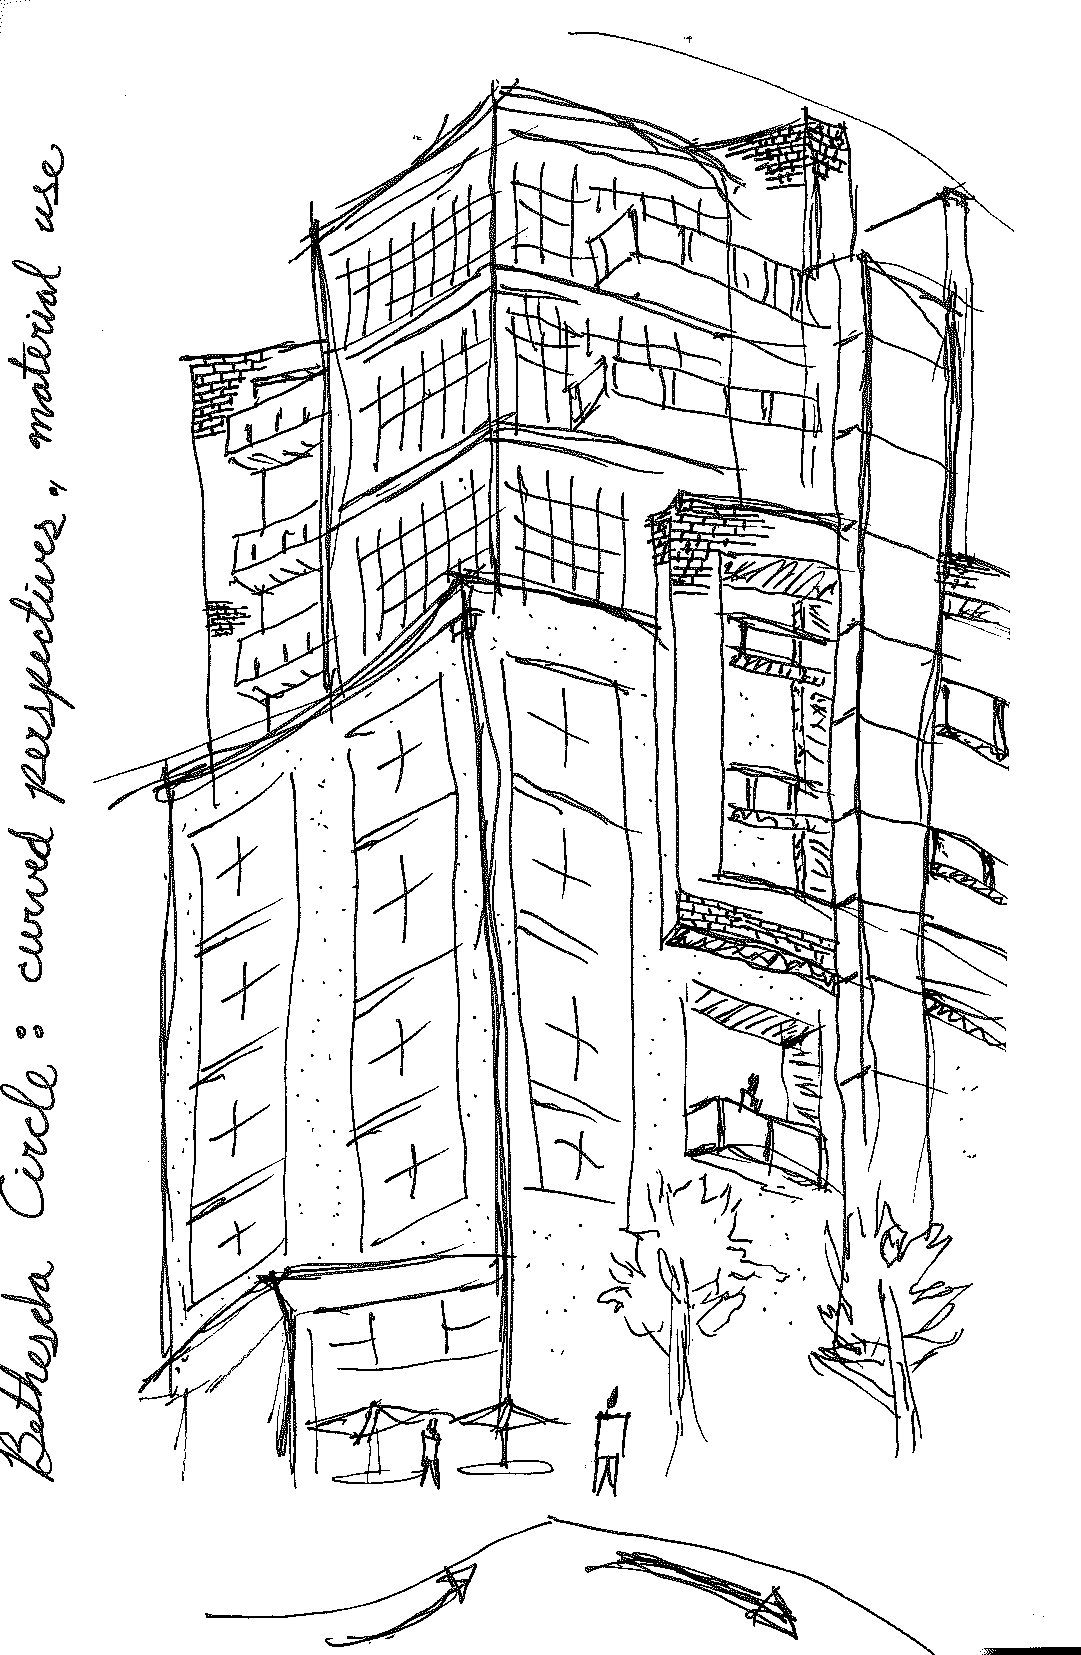 Bethesda Circle : curved perspectives, material use